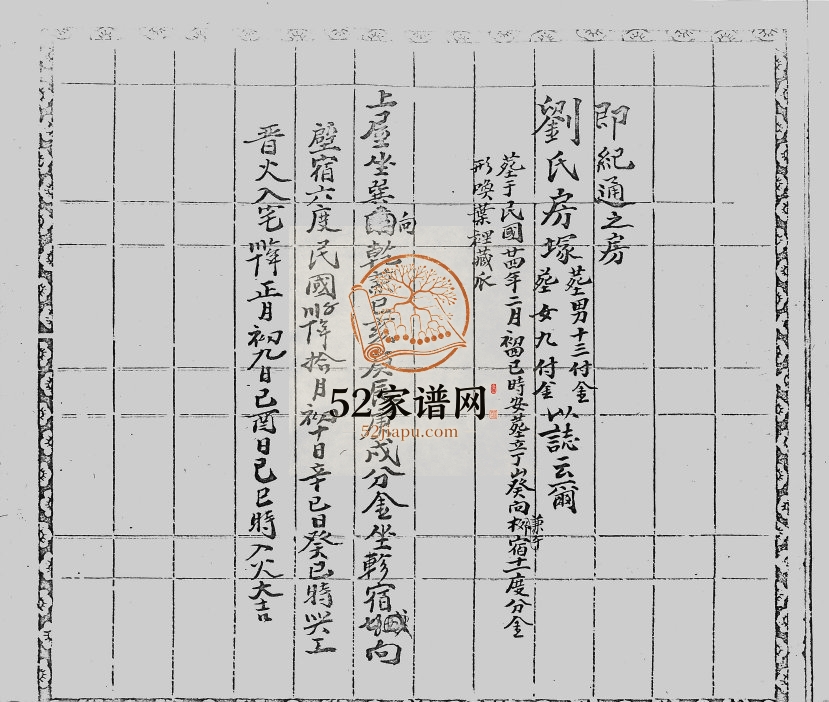 即紀通之房
劉氏房塚塟男十三付金塟女九付金以誌云爾
塟于民國廿四年二月初四巳時安塟立丁山癸向兼午柳宿十一度分金
形喚葉裡藏瓜
上屋坐巽向乾兼巳亥庚辰庚戌分金坐軫宿向
壁宿六度民國年拾月初十日辛巳日癸巳時興工
晋火入宅年正月初九日己酉日己巳時入火大吉
52家谱网
52jiapu.com